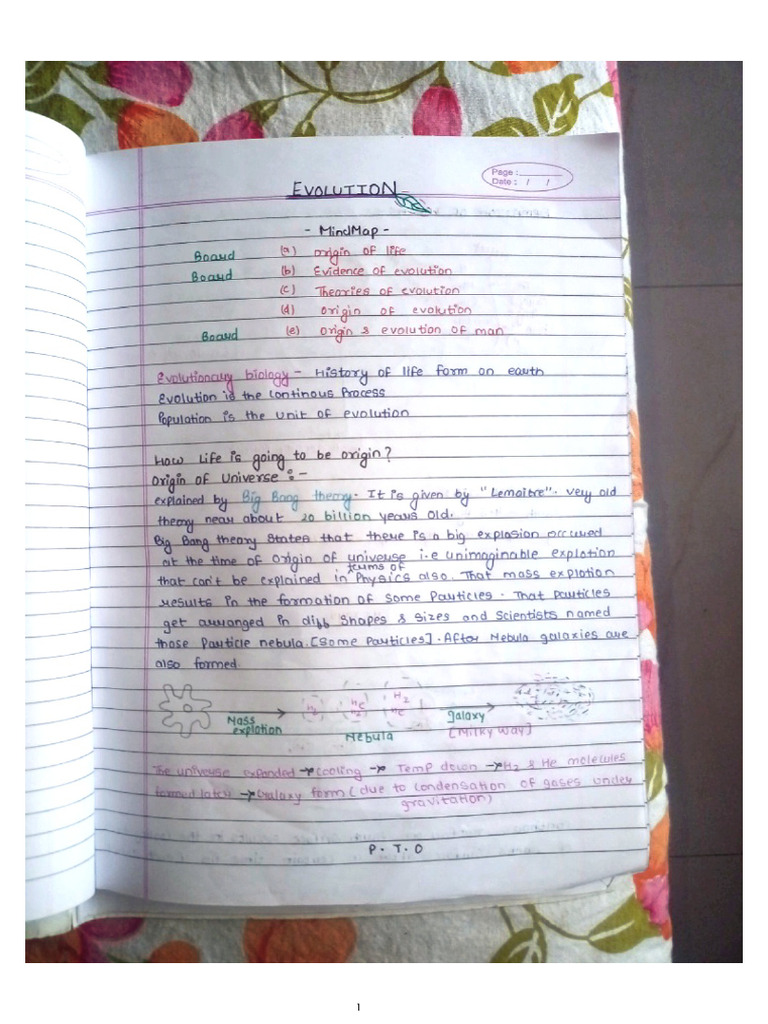 Page :
Date : / /
EVOLUTION
- MindMap -
Board (a) origin of life
Board (b) Evidence of evolution
(c) Theories of evolution
(d) Origin of evolution
Board (e) Origin & evolution of man
Evolutionary biology - History of life form on earth
Evolution is the continous Process
Population is the unit of evolution
How life is going to be origin?
Origin of Universe :-
explained by Big Bang theory. It is given by "Lemaitre". very old
theory near about 20 billion years old.
Big Bang theory states that there is a big explosion occured
at the time of origin of universe i.e unimaginable explotion
that can't be explained in terms of Physics also. That mass explotion
results in the formation of some Particles. That particles
get arranged in diff shapes & sizes and scientists named
those Particle nebula. [Some Particles]. After Nebula galaxies are
also formed.
Mass explotion
H2
He
H2
H2
He
Nebula
galaxy
[Milky Way]
The universe expanded → Cooling → Temp down → H2 & He molecules
formed later → Galaxy form (due to condensation of gases under
gravitation)
P. T. O
1